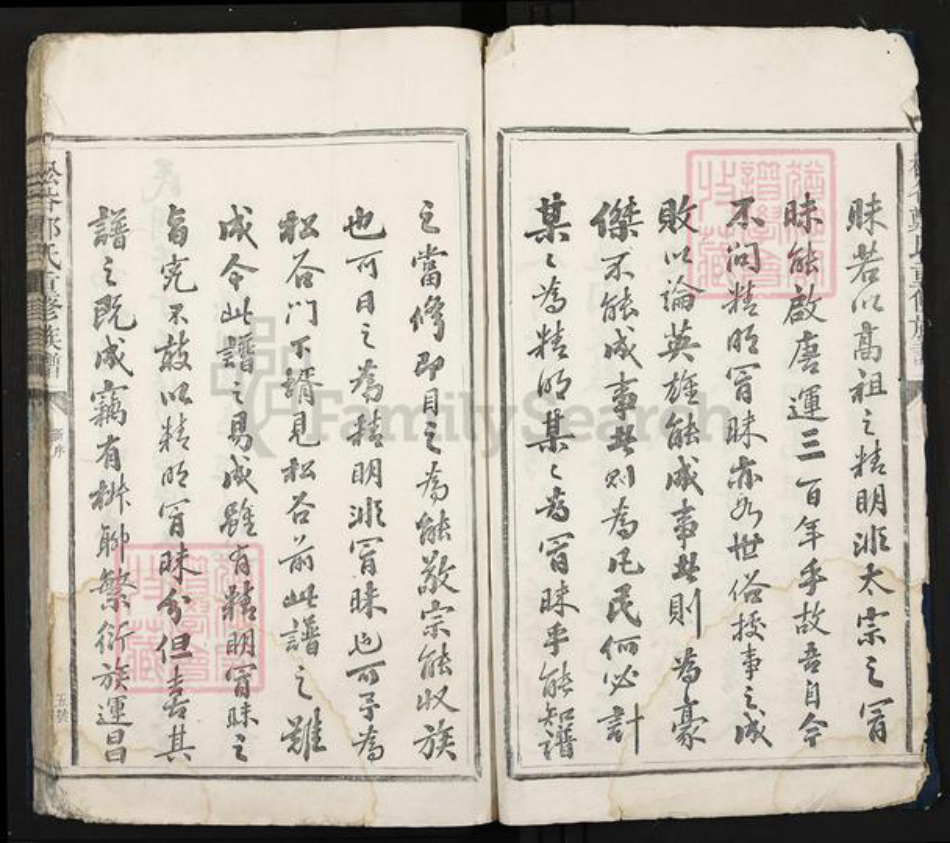 昧若以高祖之精明非太宗之冒
昧能啟唐運三百年乎故吾自今
不问精明冒昧亦如世俗按事之成
敗以論英雄能成事此則為豪
傑不能成事此则為凡民何必計
某〻為精明某〻為冒昧乎能知譜
之當修即目之為能敬宗能收族
也可目之為精明非冒昧也可予為
松谷门下壻見松谷前此譜之難
成今此譜之易成雖有精明冒昧之
旨究不敢以精明冒昧分但喜其
譜之既成竊有椒聊繁衍族運昌
松谷鄭氏重修族譜
序
五號
松谷鄭氏重修族譜
FamilySearch